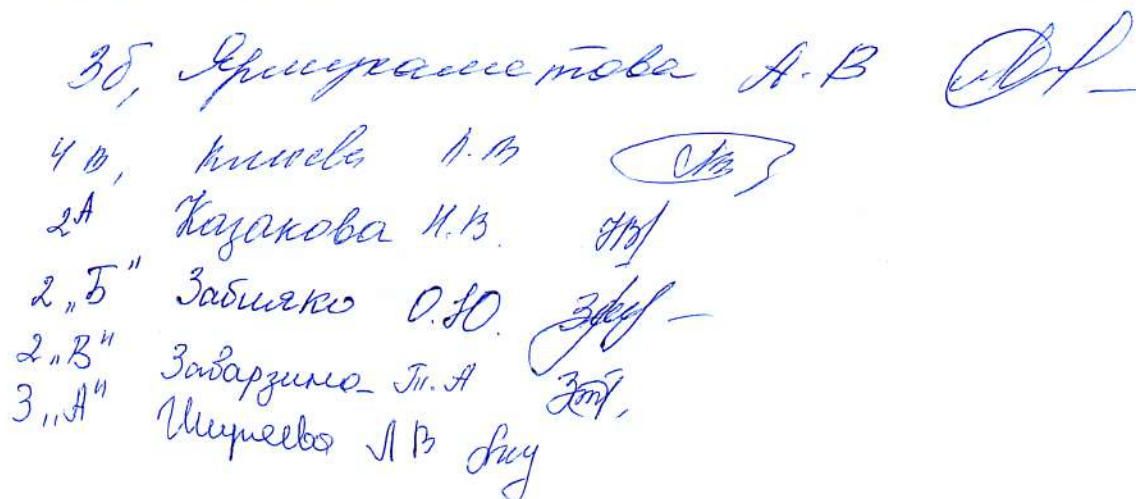 3б, Ярмухаметова А.В
4 в, Клюева А.В
2А Казакова Н.В.
2 „Б" Забияко О.Ю.
2 „В" Заварзина Т.А
3 „А" Шуреева Л В